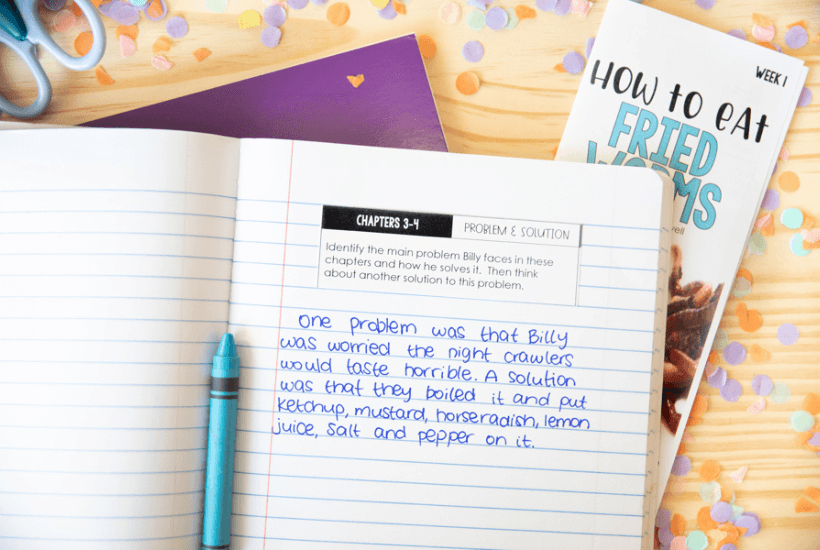 WEEK 1
HOW TO EAT
FRIED
WORMS
CHAPTERS 3-4
PROBLEM & SOLUTION
Identify the main problem Billy faces in these
chapters and how he solves it. Then think
about another solution to this problem.
One problem was that Billy
was worried the night crawlers
would taste horrible. A solution
was that they boiled it and put
ketchup, mustard, horseradish, lemon
juice, salt and pepper on it.